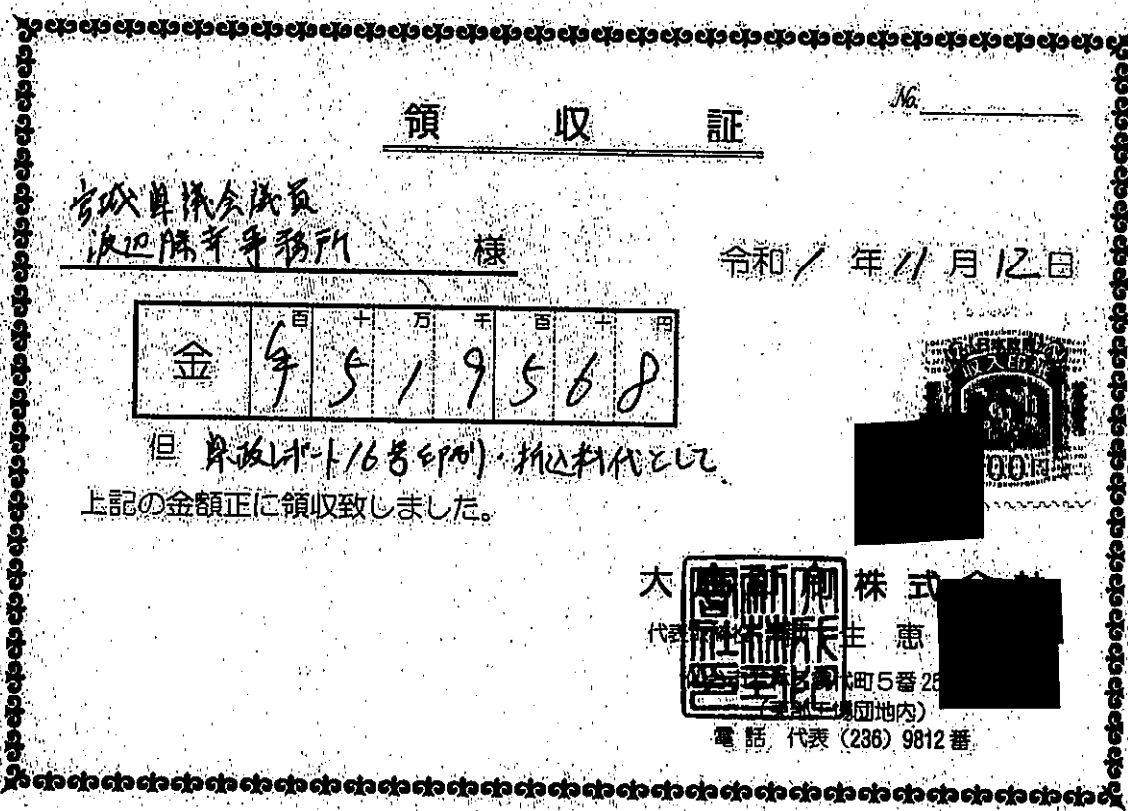 領収証
No.
宮城県議会議員
渡辺勝幸事務所 様
令和1年11月12日
百十万千百十円
金 ¥519568
但 県政レポート16号印刷・折込料代として
上記の金額正に領収致しました。
収入印紙
00円
大 株式
代表 生 恵
代町5番25
団地内)
電話 代表 (236) 9812番